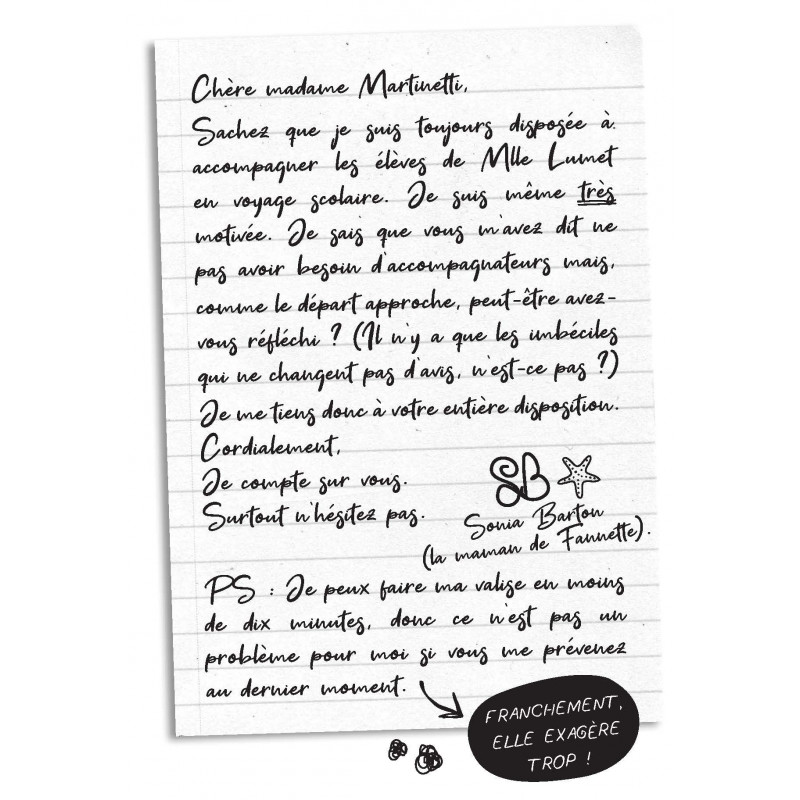 Chère madame Martinetti,
Sachez que je suis toujours disposée à
accompagner les élèves de Mlle Lumet
en voyage scolaire. Je suis même très
motivée. Je sais que vous m'avez dit ne
pas avoir besoin d'accompagnateurs mais,
comme le départ approche, peut-être avez-
vous réfléchi ? (Il n'y a que les imbéciles
qui ne changent pas d'avis, n'est-ce pas ?)
Je me tiens donc à votre entière disposition.
Cordialement,
Je compte sur vous.
Surtout n'hésitez pas.
SB
Sonia Barton
(la maman de Fannette).
PS : Je peux faire ma valise en moins
de dix minutes, donc ce n'est pas un
problème pour moi si vous me prévenez
au dernier moment.
FRANCHEMENT,
ELLE EXAGÈRE
TROP !